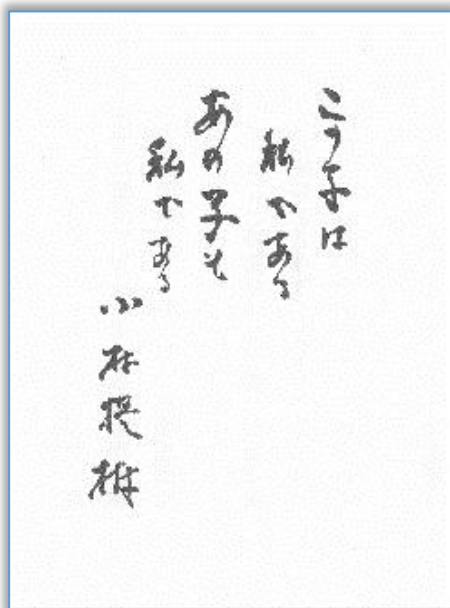 この子は
私である
あの子も
私である
小林提樹